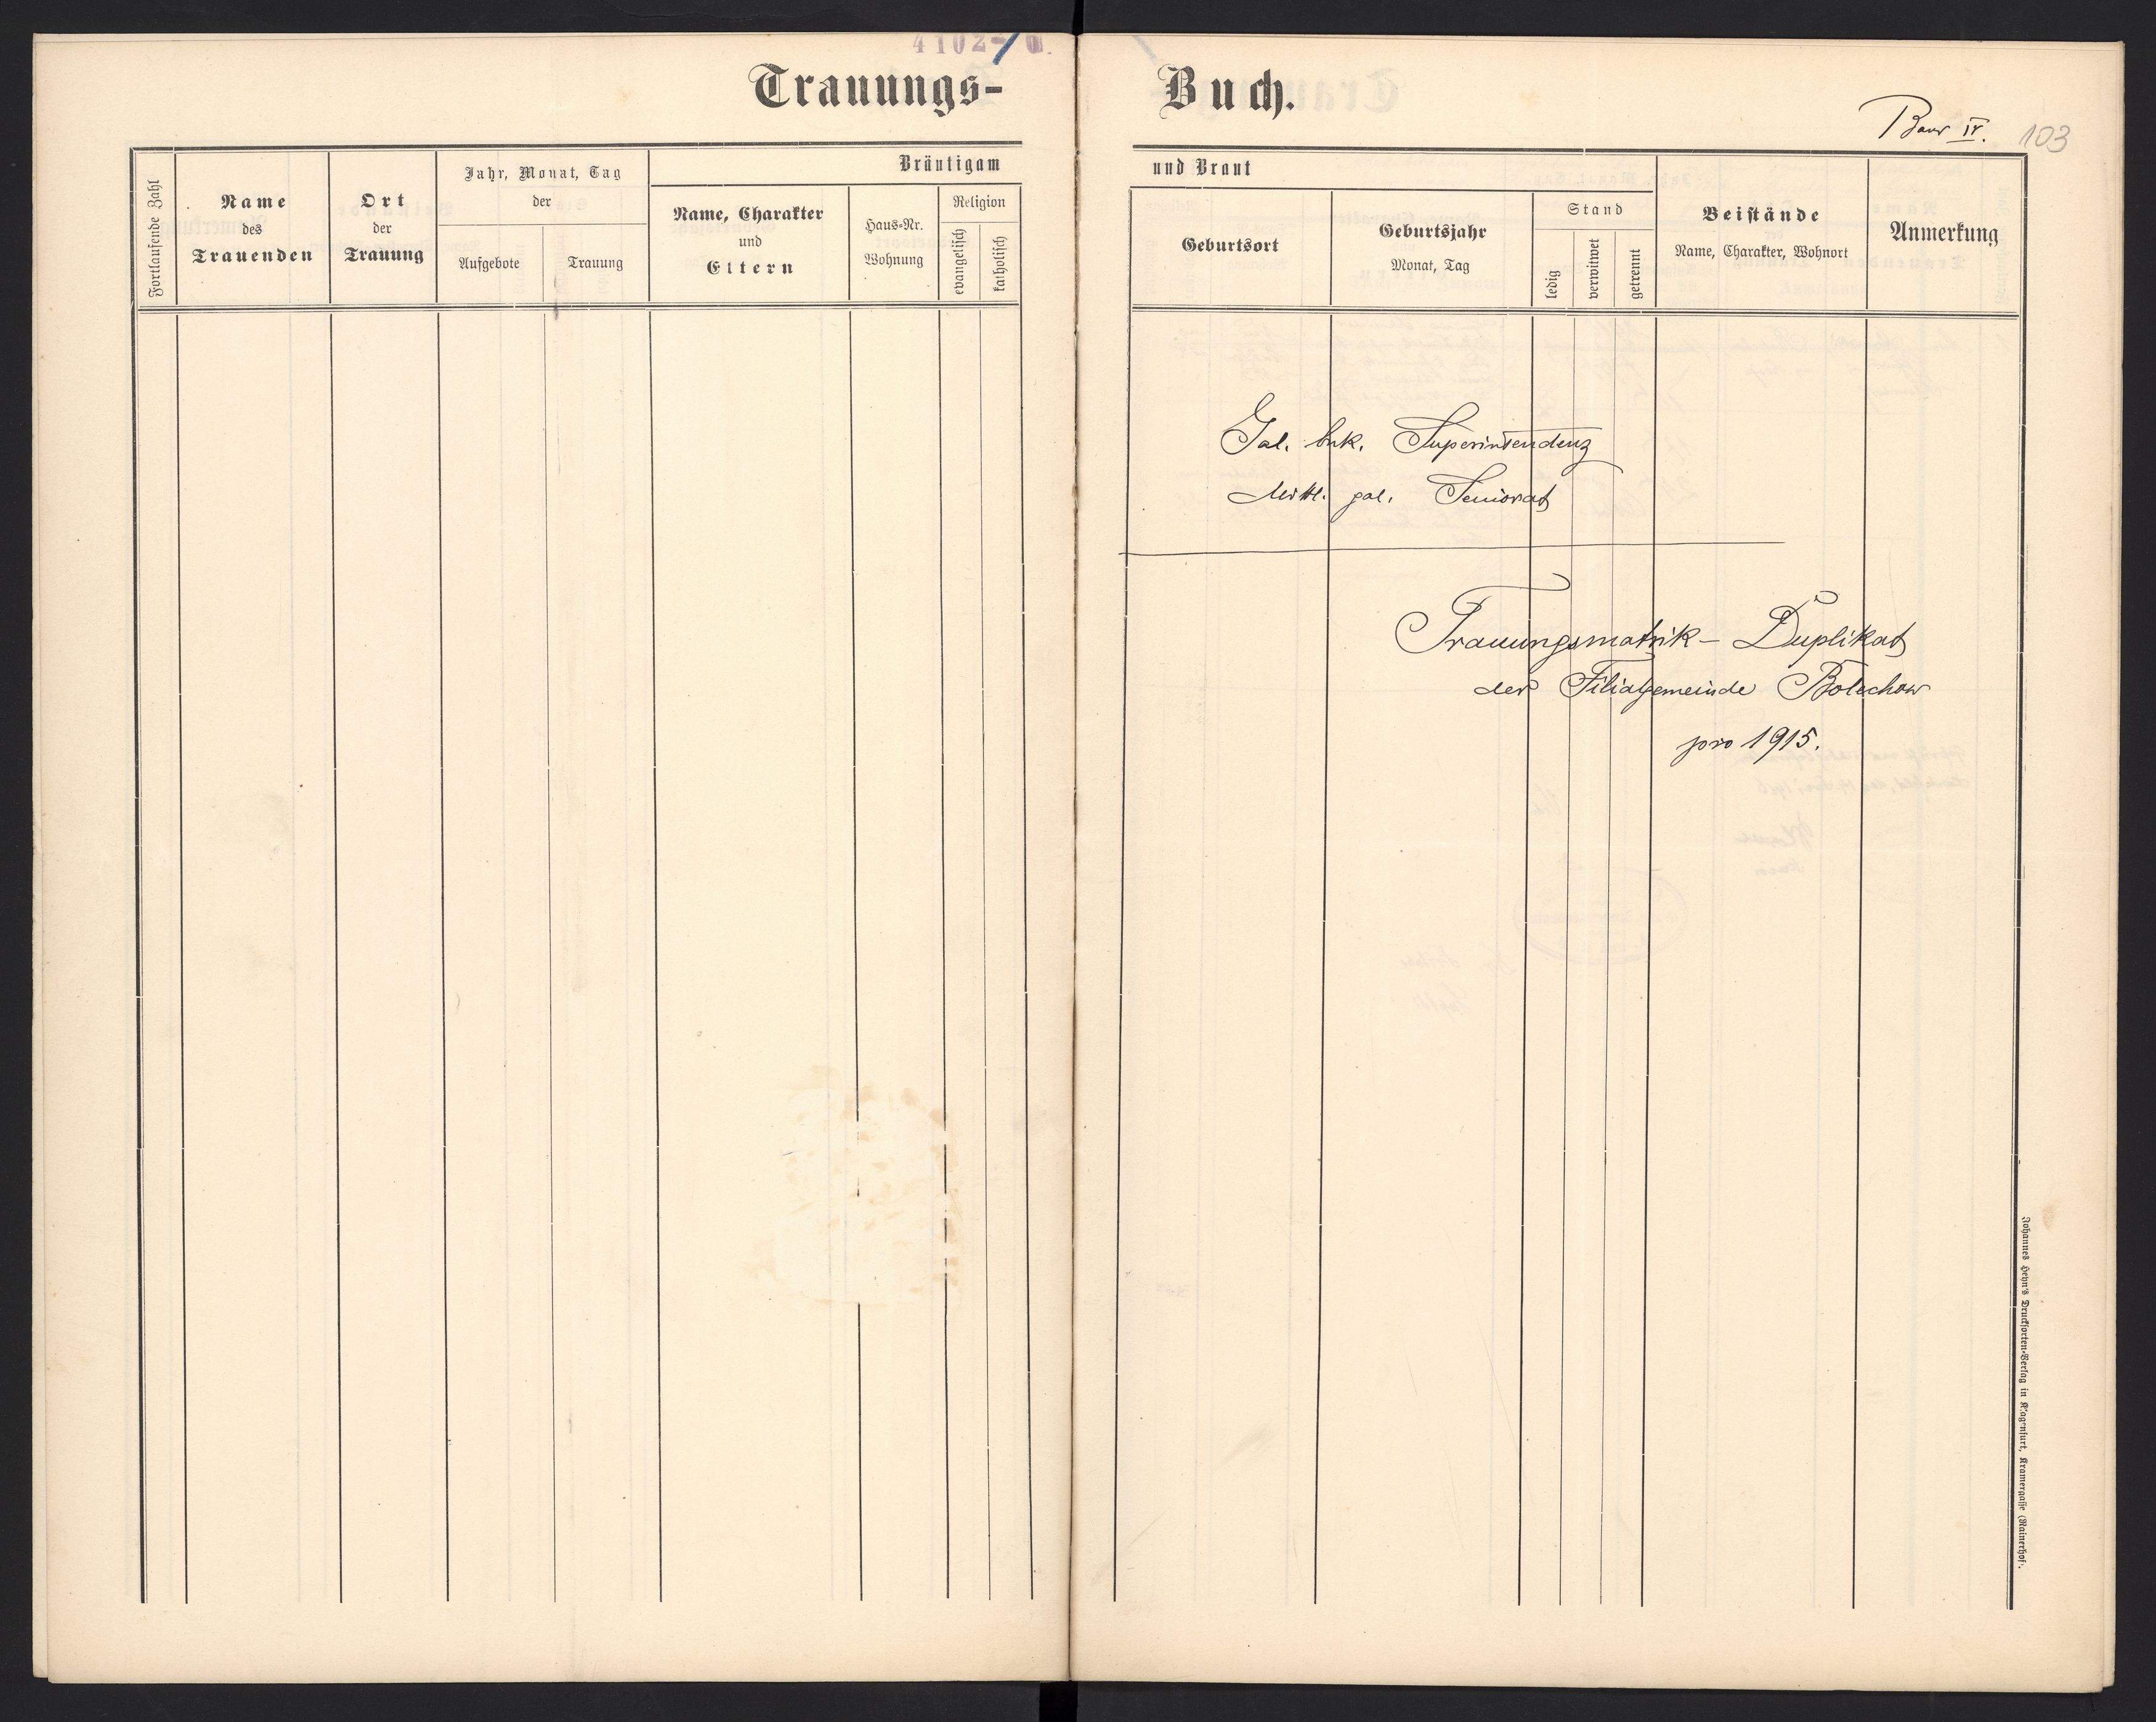 Trauungs-
Buch.
Band IV. 103
Fortlaufende Zahl
Name
des
Trauenden
Ort
der
Trauung
Jahr, Monat, Tag
der
Aufgebote
Trauung
Bräutigam
Name, Charakter
und
Eltern
Haus-Nr.
Wohnung
Religion
evangelisch
katholisch
und Braut
Geburtsort
Geburtsjahr
Monat, Tag
Stand
ledig
verwitwet
getrennt
Beistände
Name, Charakter, Wohnort
Anmerkung
Gal. buk. Superintendenz
Mittl. gal. Seniorat
Trauungsmatrik- Duplikat
der Filialgemeinde Bolechow
pro 1915.
Johannes Heyn's Drucksorten-Verlag in Klagenfurt, Kramergasse (Rainerhof).